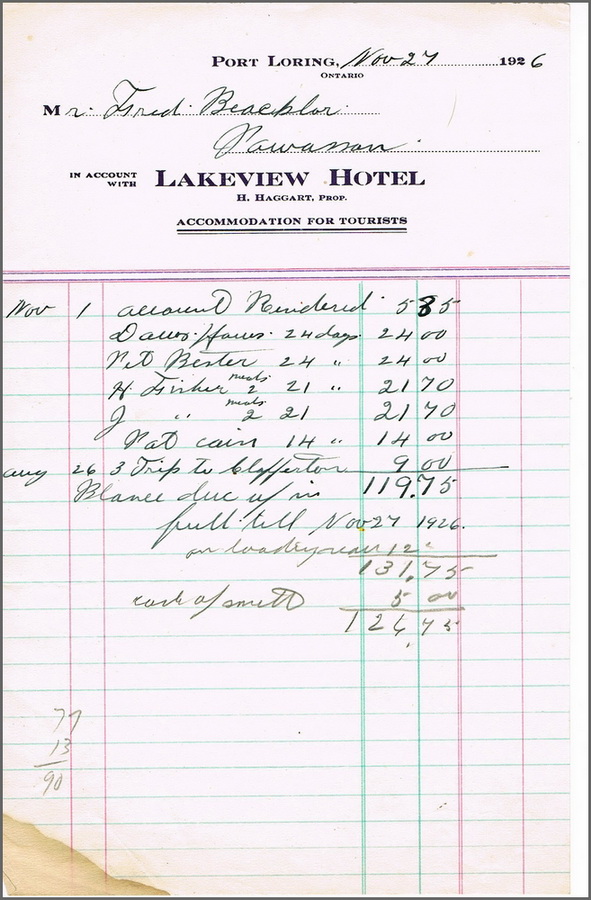 PORT LORING, Nov 27 1926
ONTARIO
Mr. Fred. Beachlor.
Powassan.
IN ACCOUNT WITH LAKEVIEW HOTEL
H. HAGGART, PROP.
ACCOMMODATION FOR TOURISTS
Nov 1 account Rendered 5 35
24 days 24 00
Pet 24 " 24 00
meals
H Fisher 2 21 " 21 70
meals
J " 2 21 21 70
Pat cain 14 " 14 00
aug 26 3 Trip to 9 00
Blance due a/c in 119.75
full till Nov 27 1926.
on 12
131.75
5 00
126 75
77
13
90